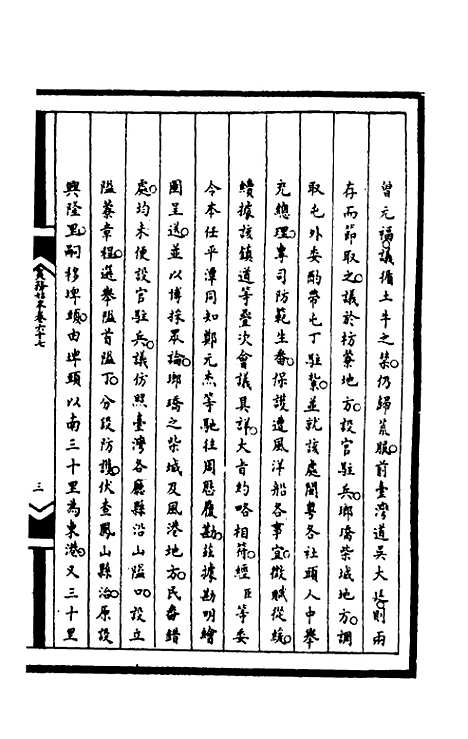 曾元福議循土牛之禁仍歸荒服前臺灣道吳大廷則兩
存而節取之議於枋藔地方設官駐兵瑯𤩝柴城地方調
取屯外委酌帶屯丁駐紮並就該處閩粵各社頭人中舉
充總理專司防範生番保護遭風洋船各事宜徵賦從緩
續據該鎮道等疊次會議具詳大旨約略相符經臣等委
令本任平潭同知鄭元杰等馳往周歷履勘茲據勘明繪
圖呈送並以博採眾論瑯𤩝之柴城及風港地方民番錯
處均未便設官駐兵議仿照臺灣各廳縣沿山隘口設立
隘藔章程選舉隘首隘丁分段防護伏查鳳山縣治原設
興隆里嗣移埤頭由埤頭以南三十里為東港又三十里
夷務始末卷六十七
三